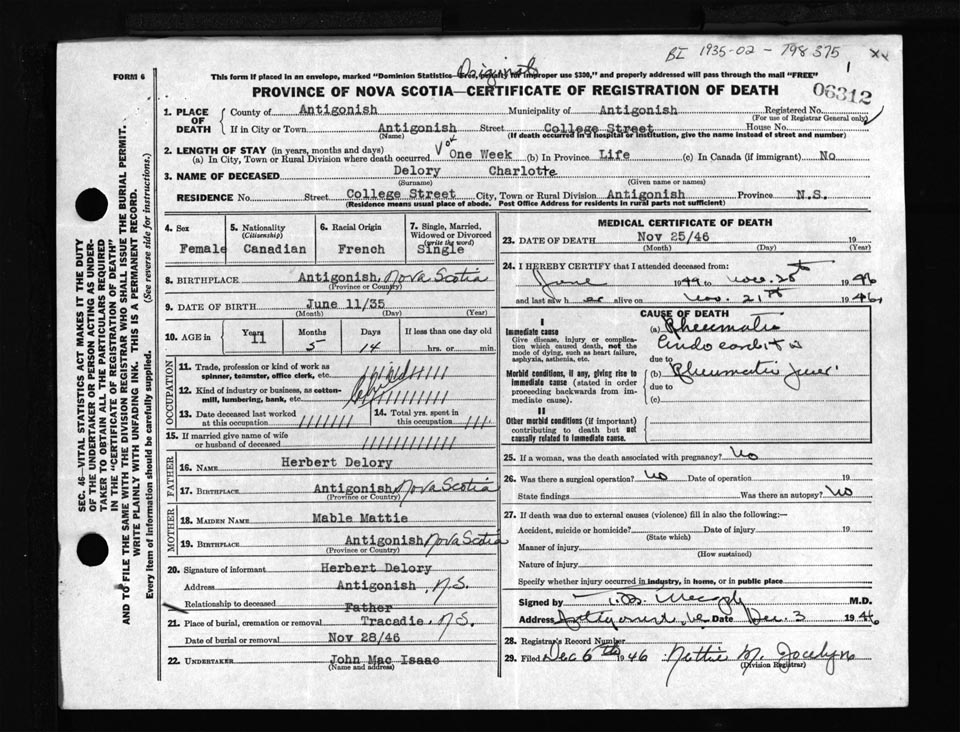 BI 1935-02-798375
xx
1
Original
FORM 6
This form if placed in an envelope, marked "Dominion Statistics—Free, Penalty for improper use $300," and properly addressed will pass through the mail "FREE"
PROVINCE OF NOVA SCOTIA—CERTIFICATE OF REGISTRATION OF DEATH
06312
1. PLACE OF DEATH
County of Antigonish Municipality of Antigonish Registered No.
(For use of Registrar General only)
If in City or Town Antigonish Street College Street House No.
(Name) (If death occurred in a hospital institution, give the name instead of street and number)
2. LENGTH OF STAY (in years, months and days)
(a) In City, Town or Rural Division where death occurred One Week (b) In Province Life (c) In Canada (if immigrant) No
3. NAME OF DECEASED Delory Charlotte
(Surname) (Given name or names)
RESIDENCE No. Street College Street City, Town or Rural Division Antigonish Province N.S.
(Residence means usual place of abode. Post Office Address for residents in rural parts not sufficient)
4. Sex Female
5. Nationality (Citizenship) Canadian
6. Racial Origin French
7. Single, Married, Widowed or Divorced (write the word) Single
8. BIRTHPLACE Antigonish, Nova Scotia
(Province or Country)
9. DATE OF BIRTH June 11/35
(Month) (Day) (Year)
10. AGE in Years 11 Months 5 Days 14 If less than one day old hrs. or min.
OCCUPATION
11. Trade, profession or kind of work as spinner, teamster, office clerk, etc.
12. Kind of industry or business, as cotton-mill, lumbering, bank, etc. Child
13. Date deceased last worked at this occupation
14. Total yrs. spent in this occupation
15. If married give name of wife or husband of deceased
FATHER
16. NAME Herbert Delory
17. BIRTHPLACE Antigonish, Nova Scotia
(Province or Country)
MOTHER
18. MAIDEN NAME Mable Mattie
19. BIRTHPLACE Antigonish, Nova Scotia
(Province or Country)
20. Signature of informant Herbert Delory
Address Antigonish, N.S.
Relationship to deceased Father
21. Place of burial, cremation or removal Tracadie, N.S.
Date of burial or removal Nov 28/46
22. UNDERTAKER John Mac Isaac
(Name and address)
MEDICAL CERTIFICATE OF DEATH
23. DATE OF DEATH Nov 25/46 19
(Month) (Day) (Year)
24. I HEREBY CERTIFY that I attended deceased from:
June 1944 to Nov. 25th 1946
and last saw h er alive on Nov. 21st 1946,
CAUSE OF DEATH
I
Immediate cause
Give disease, injury or complication which caused death, not the mode of dying, such as heart failure, asphyxia, asthenia, etc.
(a) Rheumatic
Endocarditis
due to
Morbid conditions, if any, giving rise to immediate cause (stated in order proceeding backwards from immediate cause).
(b) Rheumatic fever
due to
(c)
II
Other morbid conditions (if important) contributing to death but not causally related to immediate cause.
25. If a woman, was the death associated with pregnancy? No
26. Was there a surgical operation? No Date of operation 19
State findings Was there an autopsy? No
27. If death was due to external causes (violence) fill in also the following:—
Accident, suicide or homicide? Date of injury 19
(State which)
Manner of injury
(How sustained)
Nature of injury
Specify whether injury occurred in industry, in home, or in public place
Signed by M.D.
Address Antigonish Date Dec. 3 1946
28. Registrar's Record Number
29. Filed Dec 6th 1946 Nettie M. Jocelyn
(Division Registrar)
SEC. 46—VITAL STATISTICS ACT MAKES IT THE DUTY
OF THE UNDERTAKER OR PERSON ACTING AS UNDER-
TAKER TO OBTAIN ALL THE PARTICULARS REQUIRED
IN THE "CERTIFICATE OF REGISTRATION OF DEATH"
AND TO FILE THE SAME WITH THE DIVISION REGISTRAR WHO SHALL ISSUE THE BURIAL PERMIT.
WRITE PLAINLY WITH UNFADING INK. THIS IS A PERMANENT RECORD.
Every item of information should be carefully supplied. (See reverse side for instructions.)